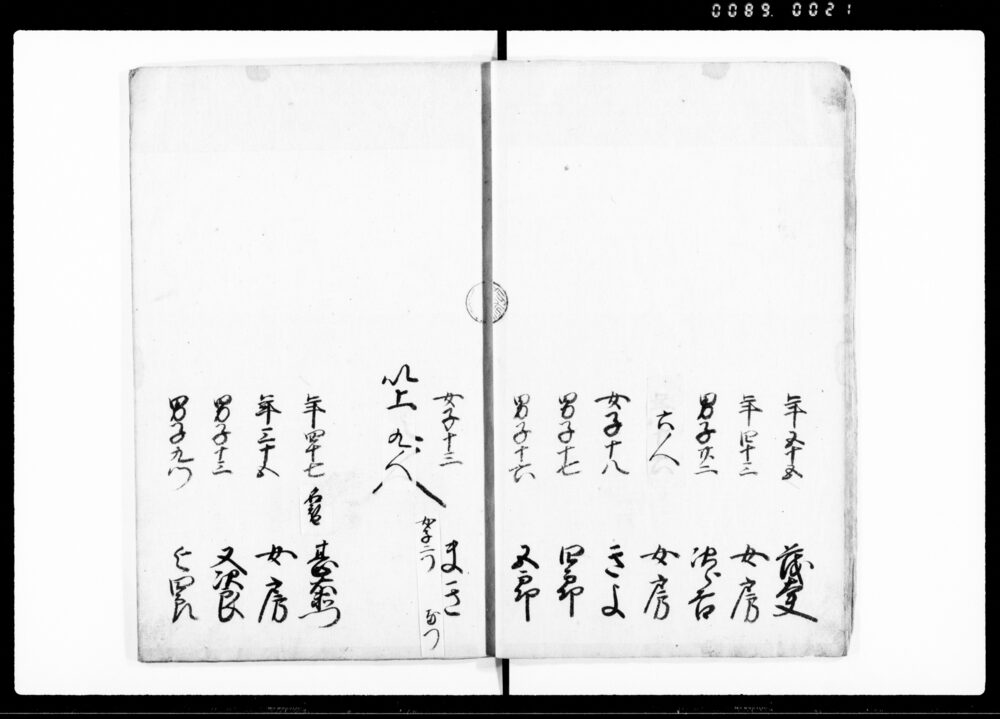 0089.0021
年五十五
年四十三 女房
男子廿二
六人 女房
女子十八 きよ
男子十七 四郎
男子十六 又郎
女子十三 まき
女子二つ なつ
以上九人
年四十七
年三十五 女房
男子十三 又次郎
男子九つ